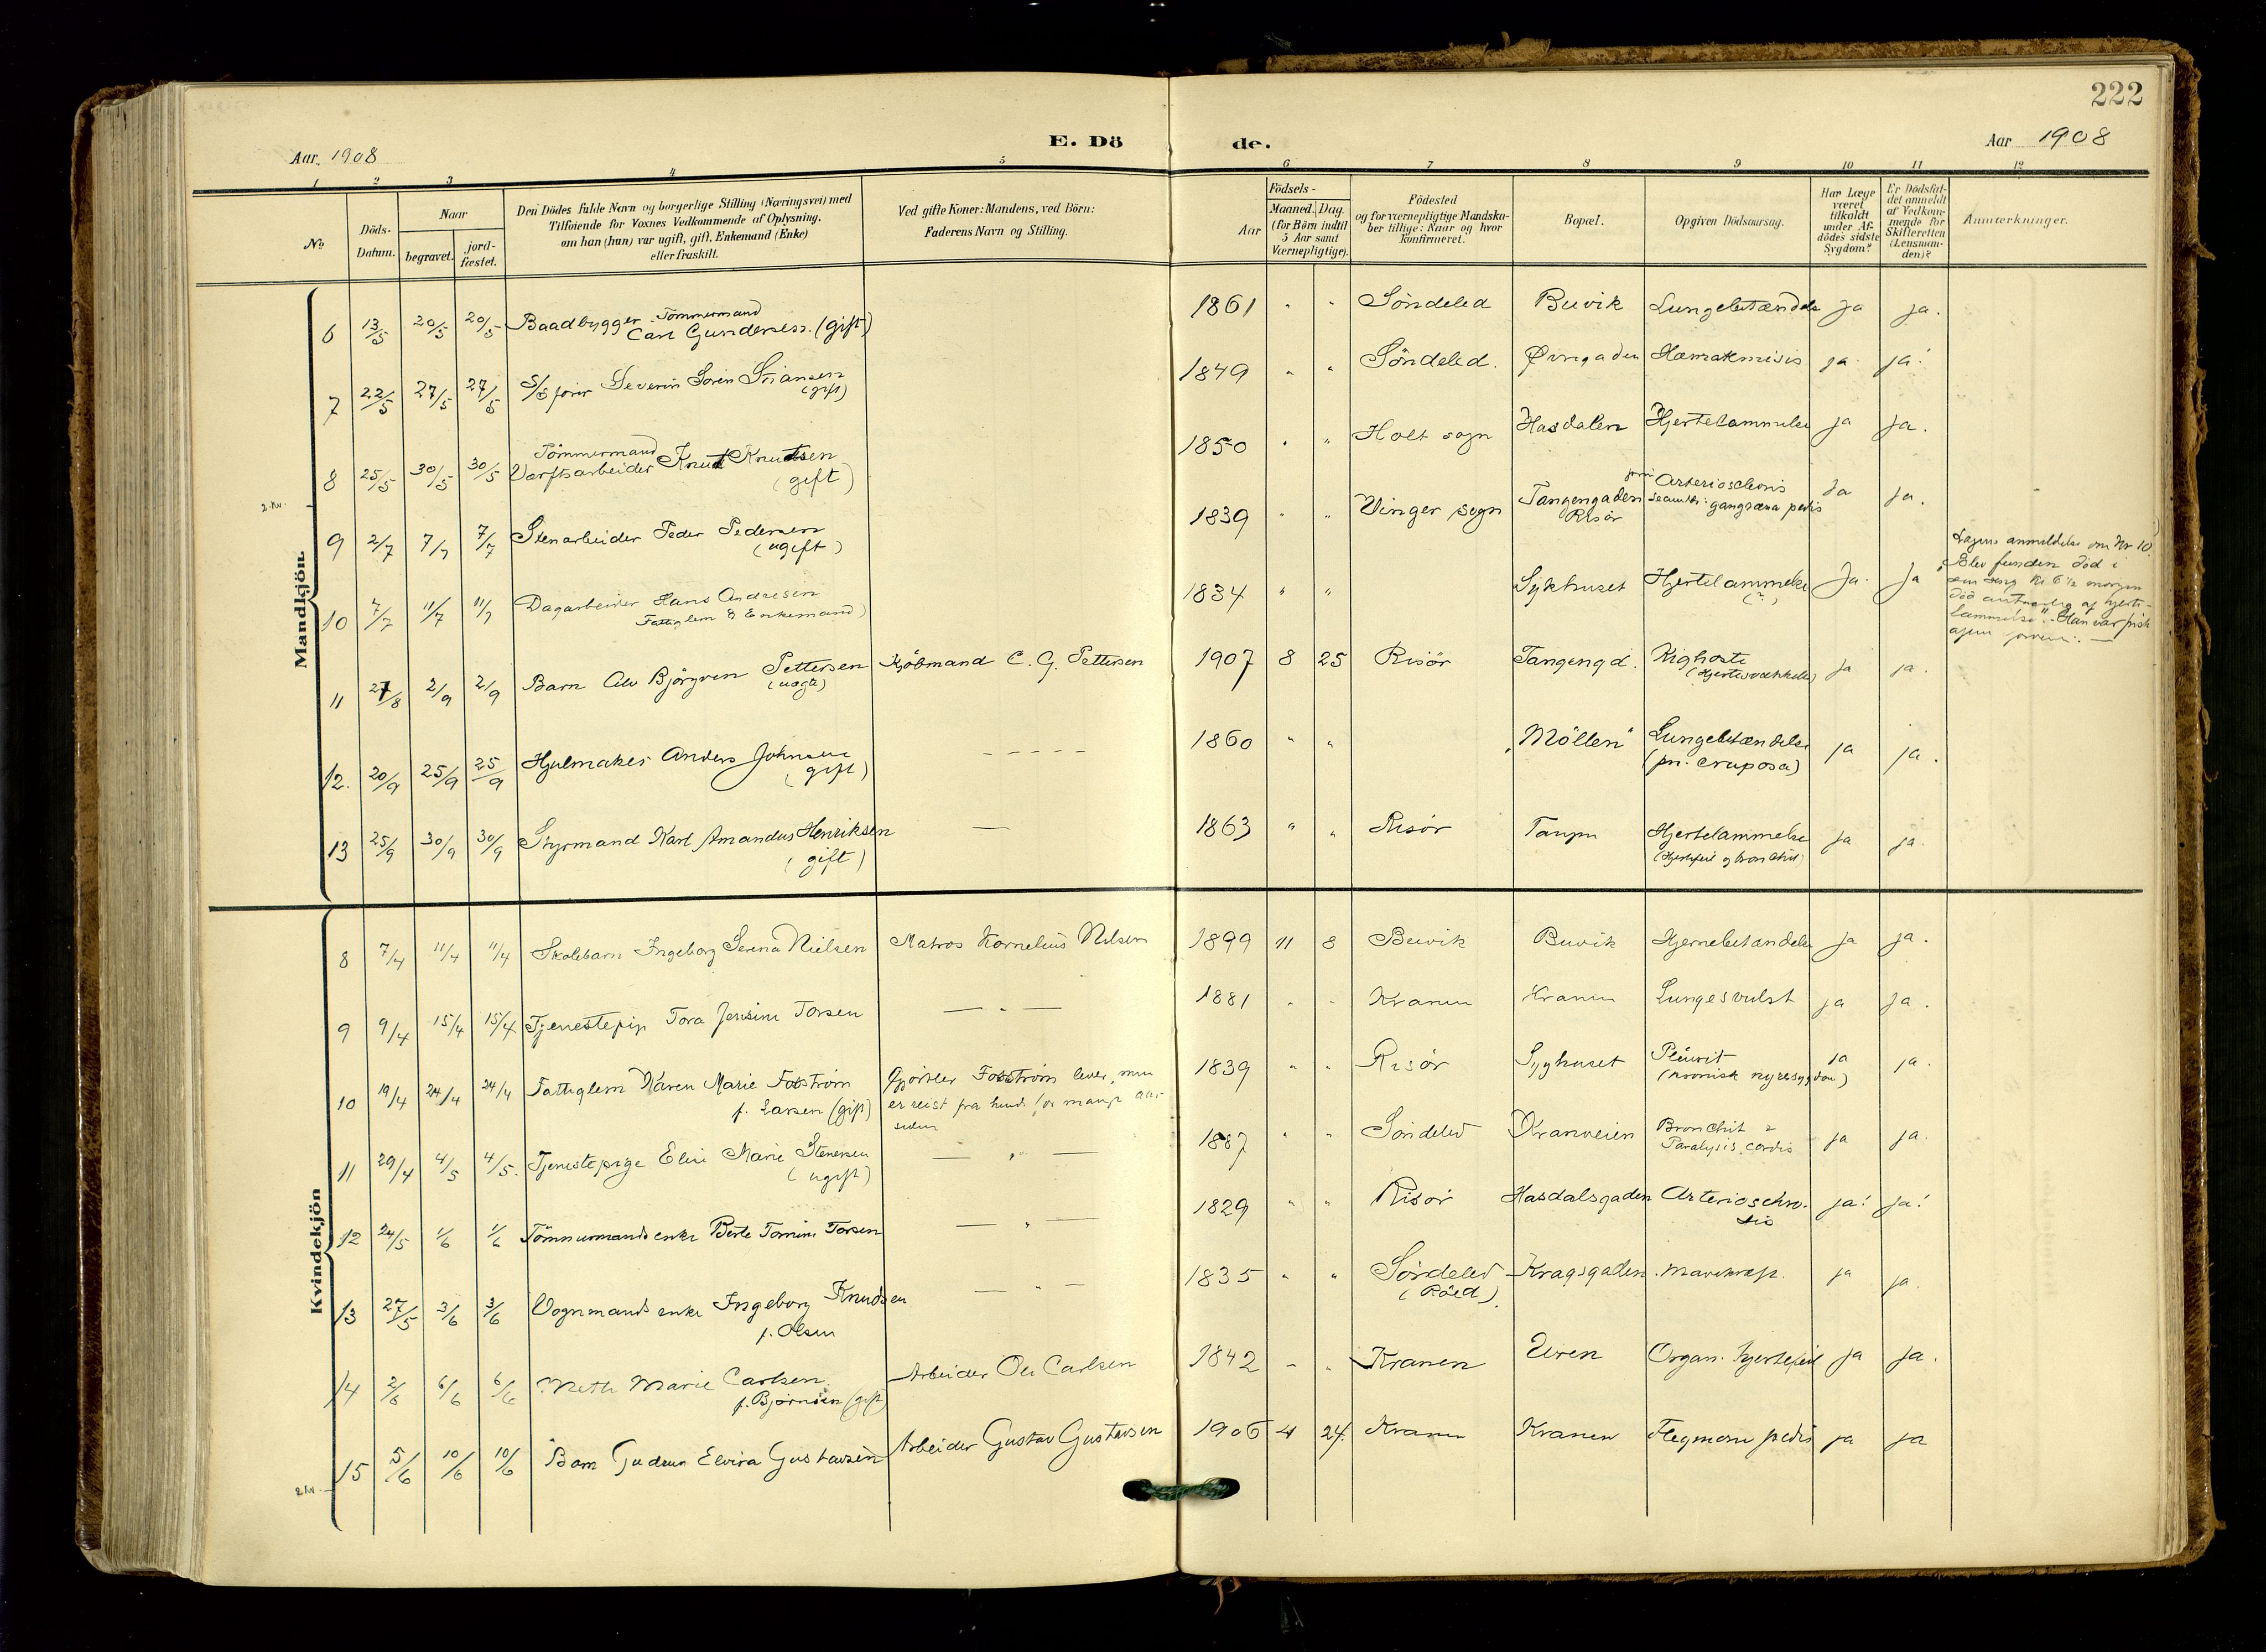 222
E. Dö de.
Aar. 1908
Aar 1908
1 2 3 4 5 6 7 8 9 10 11 12
No
Döds-Datum.
Naar
begravet.
jord-fæstet.
Den Dödes fulde Navn og borgerlige Stilling (Næringsvei) med
Tilföiende for Voxnes Vedkommende af Oplysning,
om han (hun) var ugift, gift, Enkemand (Enke)
eller fraskilt.
Ved gifte Koner: Mandens, ved Börn:
Faderens Navn og Stilling.
Födsels-
Aar
Maaned. Dag.
(for Börn indtil
5 Aar samt
Værnepligtige).
Födested
og for værnepligtige Mandska-
ber tillige: Naar og hvor
konfirmeret.
Bopæl.
Opgiven Dödsaarsag.
Har Læge
været
tilkaldt
under Af-
dödes sidste
Sygdom?
Er Dödsfal-
det anmeldt
af Vedkom-
mende for
Skifteretten
(Lensman-
den)?
Anmærkninger.
Mandkjön
6 13/5 20/5 20/5 Baadbygger Tömmermand
Carl Gundersen (gift) 1861 " " Söndeled Buvik Lungebetændelse ja ja.
7 22/5 27/5 27/5 S/S förer Severin Sörin
(gift) 1849 " " Söndeled. ja. ja!
8 25/5 30/5 30/5 Tömmermand
Værftsarbeider Knut Knutsen
(gift) 1850 " " Holt sogn Hasdalen Hjertelammelse ja ja.
2. Kv.
9 2/7 7/7 7/7 Stenarbeider Peder Pedersen
(ugift) 1839 " " Vinger sogn Tangengaden
Risør gangræna pedis ja ja.
10 7/7 11/7 11/7 Dagarbeider Hans Andresen
Fattiglem & Enkemand) 1834 " " Sykhuset Hjertelammelse
(?) Ja. Ja
Lægens anmeldelse om Nr 10.
"Blev funden död i
sin seng Kl 6 1/2 morgen
död af hjerte-
lammelse". Han var frisk
11 27/8 2/9 2/9 Barn Björgven Pettersen
(uægte) Kjöbmand C. G. Pettersen 1907 8 25 Risör Tangengd. Kighoste
(Hjertesvækkelse) ja ja.
12. 20/9 25/9 25/9 Hjulmaker Anders Johnsen
(gift) - - - - - 1860 " " "Möllen" Lungebetændelse
(pn. cruposa) ja ja.
13 25/9 30/9 30/9 Styrmand Karl Amandus Henriksen
(gift) — 1863 " " Risör Hjertelammelse
(Hjertefeil og bronchit) ja ja.
Kvindekjön
8 7/4 11/4 11/4 Skolebarn Ingeborg Serina Nielsen Matros Kornelius Nilsen 1899 11 8 Buvik Buvik Hjernebetændelse ja ja.
9 9/4 15/4 15/4 Tjenestepige Tora Jensine Torsen — " — 1881 " " Kranen Kranen Lungesvulst ja ja.
10 19/4 24/4 24/4 Fattiglem Karen Marie Foxstrøm
f. Larsen (gift) Gjørtler Foxstrøm lever, men
er reist fra hende for mange aar
siden 1839 " " Risör Syghuset Pleurit
(kronisk nyresygdom) ja ja.
11 29/4 4/5 4/5. Tjenestepige Elise Marie Stenersen
(ugift) — " — 1887 " " Söndeled Kranveien Bronchit &
Paralysis cordis ja ja.
12 24/5 1/6 1/6 Tömmermands enke Berte Tomine Torsen — " — 1829 " " Risör Hasdalsgaden ja! ja!
13 27/5 3/6 3/6 Vognmands enke Ingeborg Knudsen
f. Olsen — " — 1835 " " Söndeled
(Röed) Kragsgaden. Mavekræft. ja ja.
14 2/6 6/6 6/6 Meth Marie Carlsen
f. Björnsen (gift) Arbeider Ole Carlsen 1842 " " Kranen Uren Organ. hjertefeil ja ja.
15 5/6 10/6 10/6 Barn Gudrun Elvira Gustavsen Arbeider Gustav Gustavsen 1906 4 24. Kranen Kranen Flegmone pedis ja ja
2 kv.